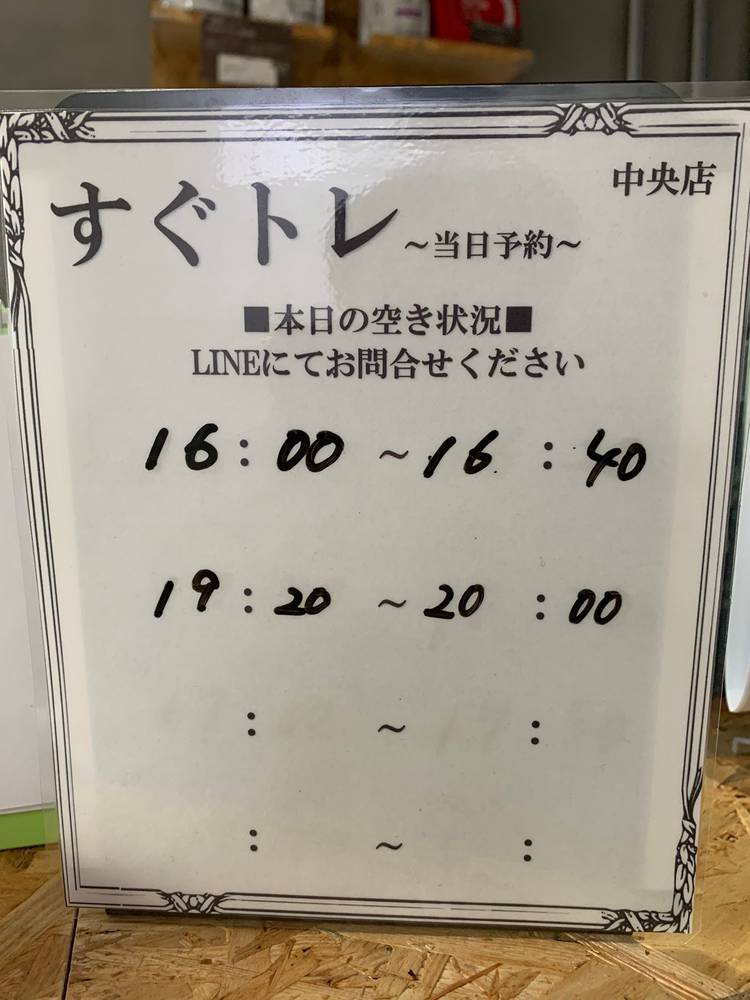 中央店
すぐトレ ～当日予約～
■本日の空き状況■
LINEにてお問合せください
16:00 ～ 16:40
19:20 ～ 20:00
: ～ :
: ～ :